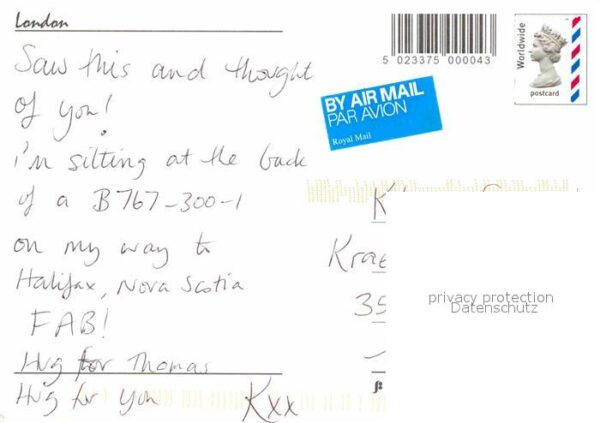 London
Saw this and thought
of you!
i'm sitting at the back
of a B767-300-1
on my way to
Halifax, Nova Scotia
FAB!
Hug for Thomas
Hug for you Kxx
5 023375 000043
BY AIR MAIL
PAR AVION
Royal Mail
Worldwide
postcard
K
Krae
35
privacy protection
Datenschutz